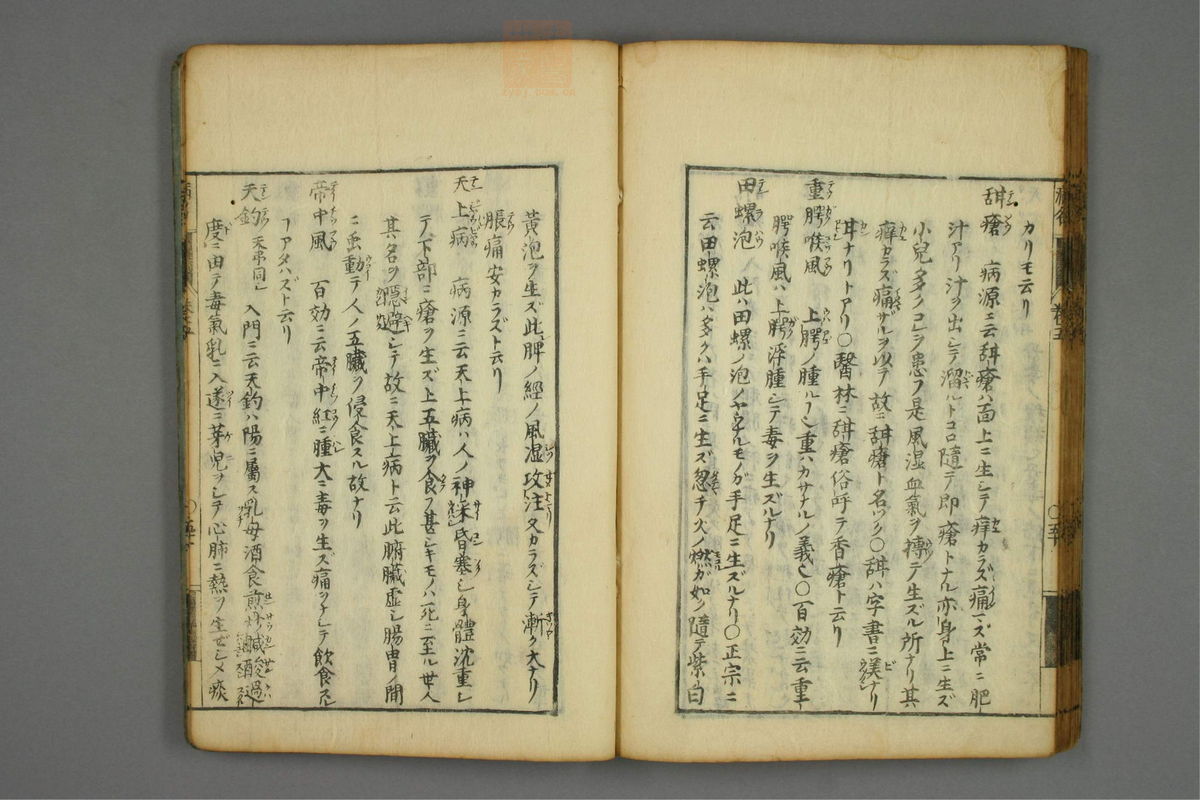 カリモ云リ
甜瘡 病源ニ云甜瘡ハ面上ニ生シテ痒カラズ痛マズ常ニ肥
汁アリ汁ヲ出シテ溜ルトコロ隨テ即瘡トナル亦身上ニ生ズ
小兒多クコレヲ患フ是風湿血氣ヲ搏テ生ズル所ナリ其
痒セラズ痛ザルヲ以テ故ニ甜瘡ト名ヅク〇甜ハ字書ニ美ナリ
甘ナリトアリ〇醫林ニ甜瘡俗呼テ香瘡ト云リ
重腭喉風 上腭ノ腫ルヽ重ハカサナルノ義也〇百効ニ云重
腭喉風ハ上腭浮腫シテ毒ヲ生ズルナリ
田螺泡 此ハ田螺ノ泡ノヤウナルモノガ手足ニ生ズルナリ〇正宗ニ
云田螺泡ハ多クハ手足ニ生ズ忽チ火ノ燃ガ如ク隨テ紫白
黃泡ヲ生ズ此脾ノ經ノ風湿攻注又カラズシテ漸ク大ナリ
脹痛安カラズト云リ
天上病 病源ニ云天上病ハ人ノ神采昏塞シ身體沈重シ
テ下部ニ瘡ヲ生ズ上五臓ヲ食フ甚シキモノハ死ニ至ル世人
其名ヲ隱避シテ故ニ天上病ト云此腑臓虚シ腸胃ノ間
ニ虫動テ人ノ五臓ヲ侵食スル故ナリ
帝中風 百効ニ云帝中紅ニ腫大ニ毒ヲ生ズ痛ツヨクシテ飲食スル
フアタハズト云リ
天釣 天弔同シ 入門ニ云天釣ハ陽ニ屬ス乳母酒食煎炒鹹酸過
度ニ由テ毒氣乳ニ入遂ニ芽兒ヲシテ心肺ニ熱ヲ生ゼシメ痰